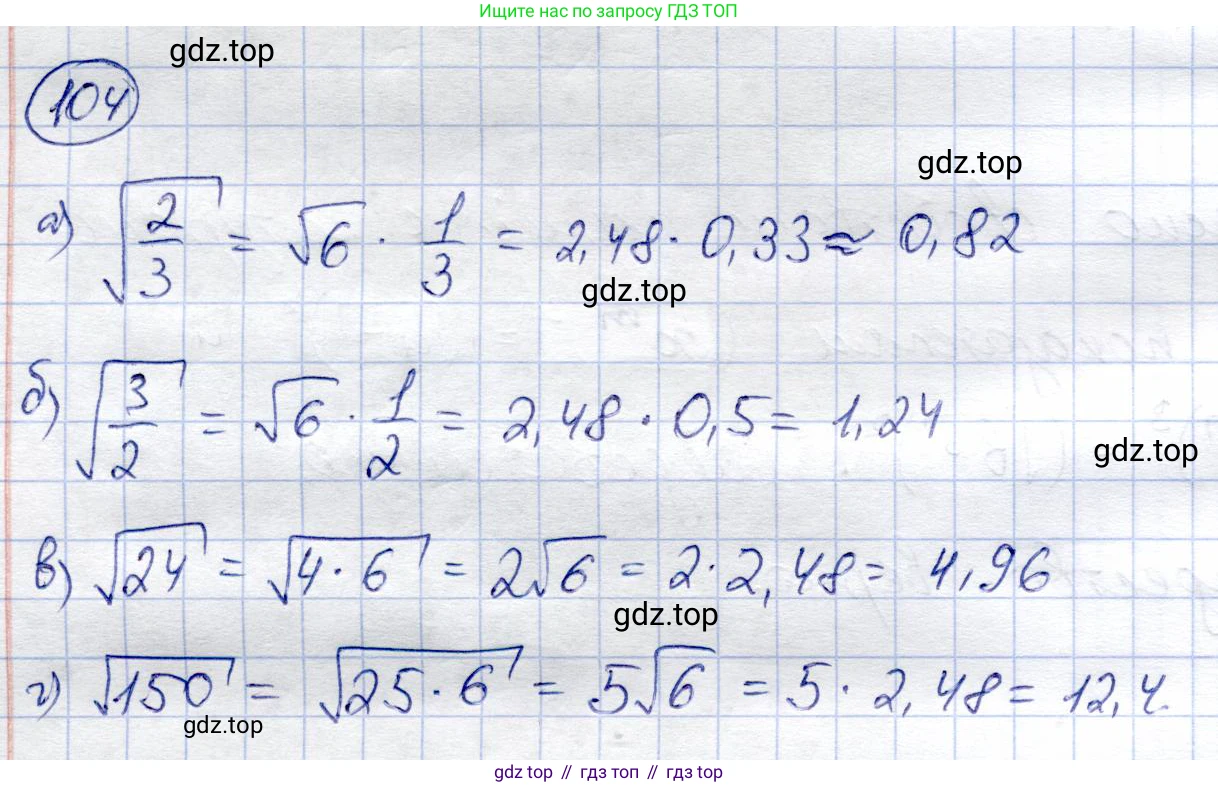 Ищите нас по запросу ГДЗ ТОП
gdz.top
104
gdz.top
а) √(2/3) = √6 · 1/3 = 2,48 · 0,33 ≈ 0,82
gdz.top
б) √(3/2) = √6 · 1/2 = 2,48 · 0,5 = 1,24
gdz.top
в) √24 = √(4 · 6) = 2√6 = 2 · 2,48 = 4,96
gdz.top
г) √150 = √(25 · 6) = 5√6 = 5 · 2,48 = 12,4.
gdz.top
gdz top // гдз топ // gdz top